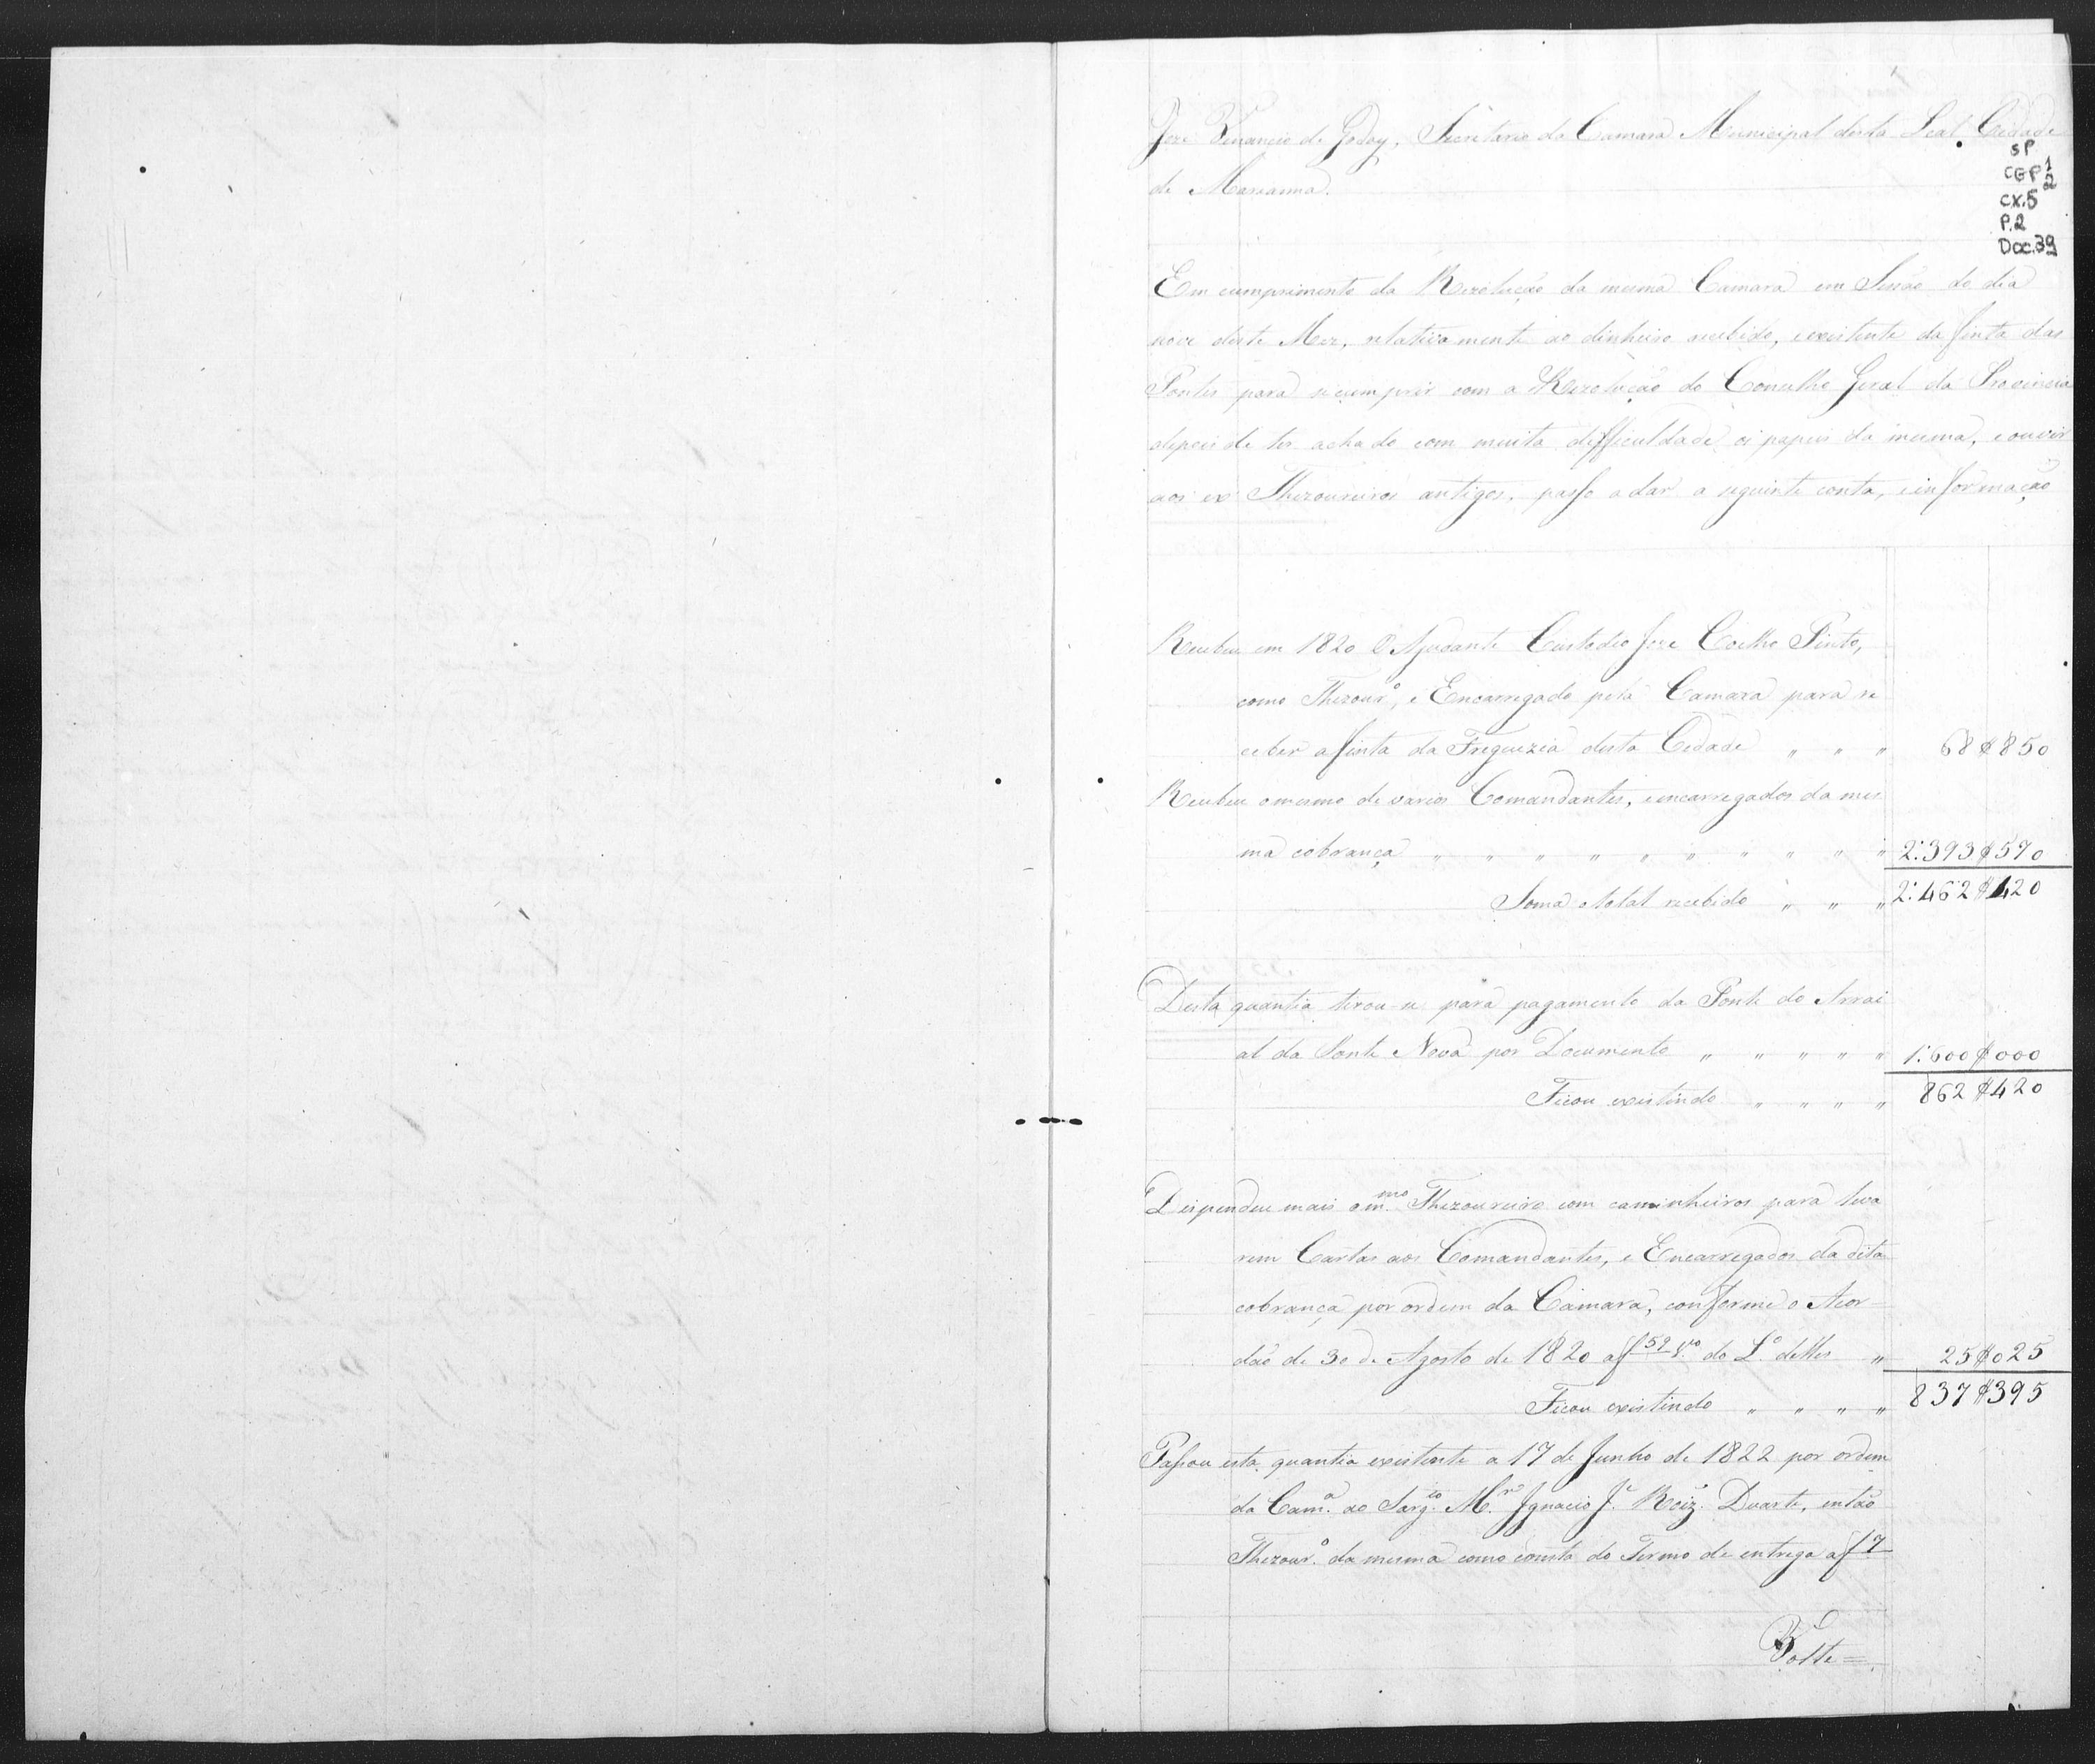 Joze Venancio de Godoy, Secretario da Camara Municipal desta Leal Cidade
de Marianna.
SP
CGP 1/2
CX.5
P.2
Doc.39
Em cumprimento da Rezolução da mesma Camara em Sessão do dia
nove deste Mez, relativamente ao dinheiro recebido, e existente da finta das
Pontes para se cumprir com a Rezolução do Conselho Geral da Provincia
depois de ter achado com muita difficuldade os papeis da mesma, e ouvir
aos ex Thezoureiros antigos, passo a dar a seguinte conta, e informação
Recebeu em 1820 O Ajudante Custodio Joze Coelho Pinto,
como Thezourº, e Encarregado pela Camara para re
ceber a finta da Freguezia desta Cidade " " " 68$850
Recebeu o mesmo de varios Comandantes, e encarregados da mes
ma cobrança " " " " " " " " " " 2:393$570
Soma o total recebido " " " 2:462$420
Desta quantia tirou-se para pagamento da Ponte do Arrai
al da Ponte Nova por Documento " " " " " 1:600$000
Ficou existindo " " " " 862$420
Dispendeu mais o m.mo Thezoureiro com caminheiros para leva
rem Cartas aos Comandantes, e Encarregados da dita
cobrança por ordem da Camara, conforme o Acor=
dão de 30 de Agosto de 1820 a f 52 v.º do L.º delles " 25$025
Ficou existindo " " " " 837$395
Passou esta quantia existente a 17 de Junho de 1822 por ordem
da Cam.ª ao Sarg.to M.or Ignacio J.e Roiz. Duarte, então
Thezour.º da mesma como consta do Termo de entrega a f 7
Volte=